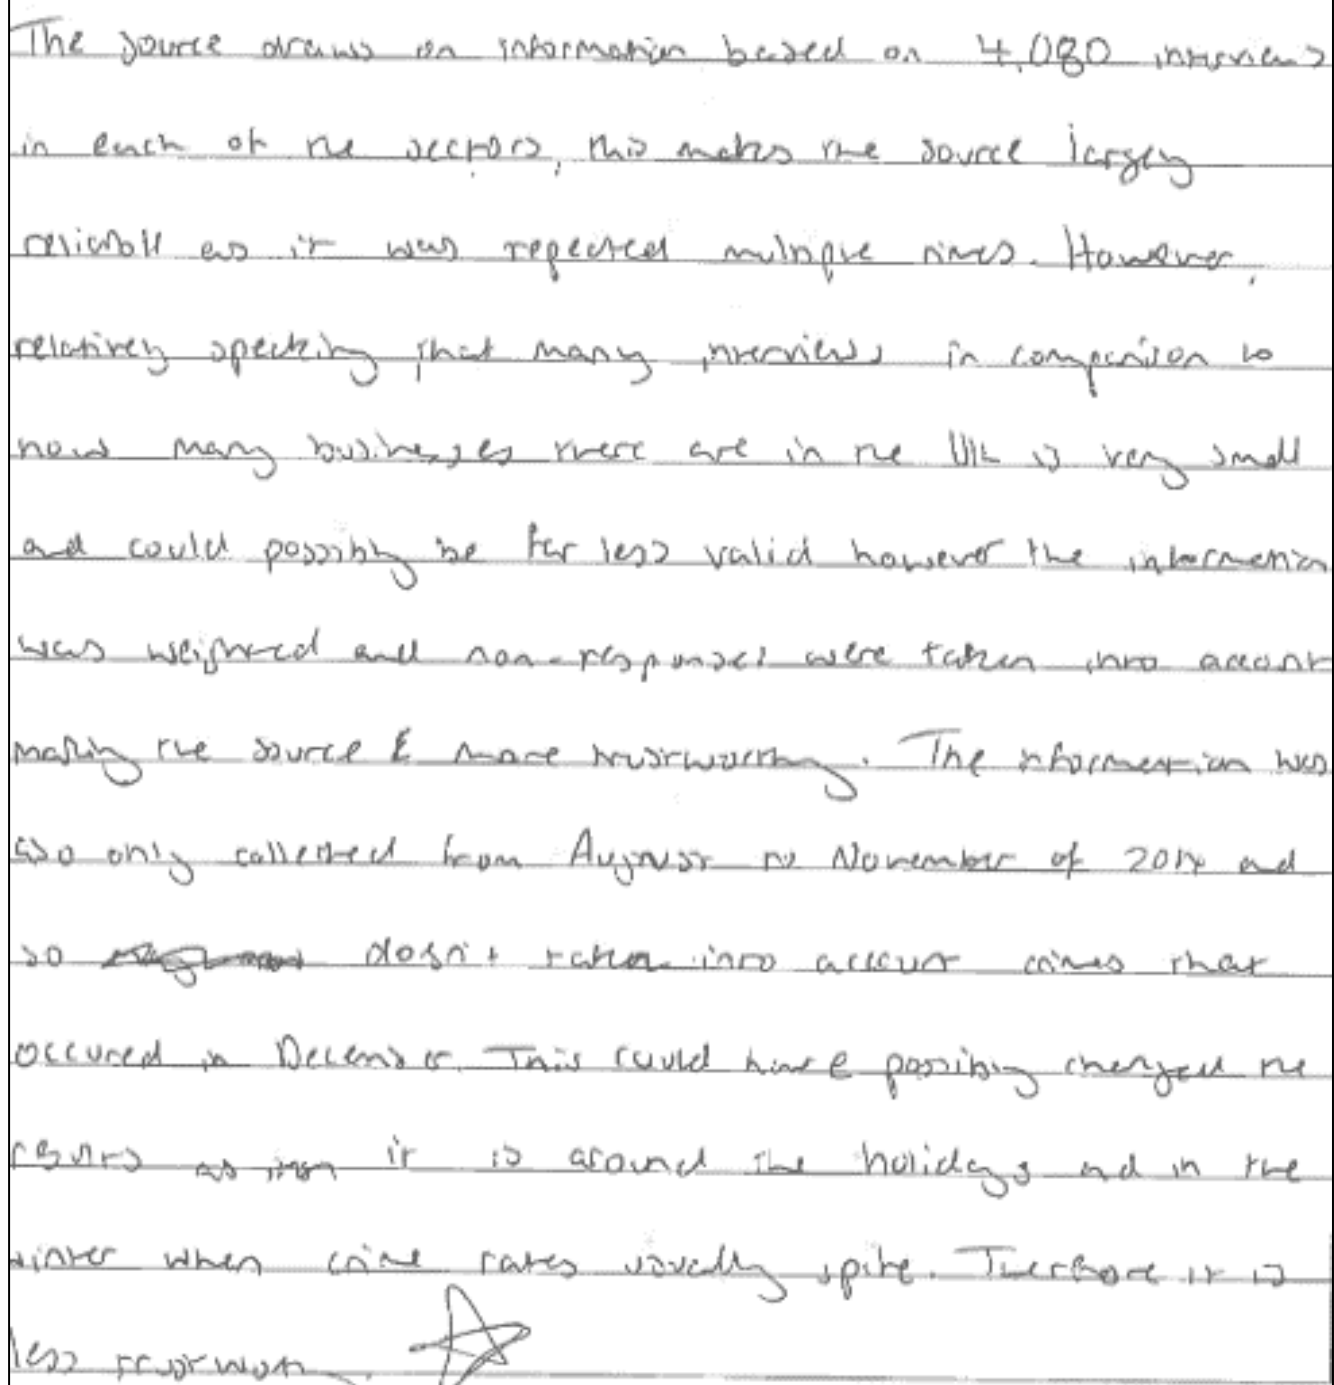 The source draws on information based on 4,080 interviews
in each of the sectors, this makes the source largely
reliable as it was repeated multiple times. However,
relatively speaking that many interviews in comparison to
how many businesses there are in the UK is very small
and could possibly be far less valid however the information
was weighted and non-responses were taken into account
making the source more trustworthy. The information was
also only collected from August to November of 2014 and
so doesn't taken into account crimes that
occured in December. This could have possibly changed the
results as it is around the holidays and in the
winter when crime rates usually spike. Therefore it is
less trustworthy.